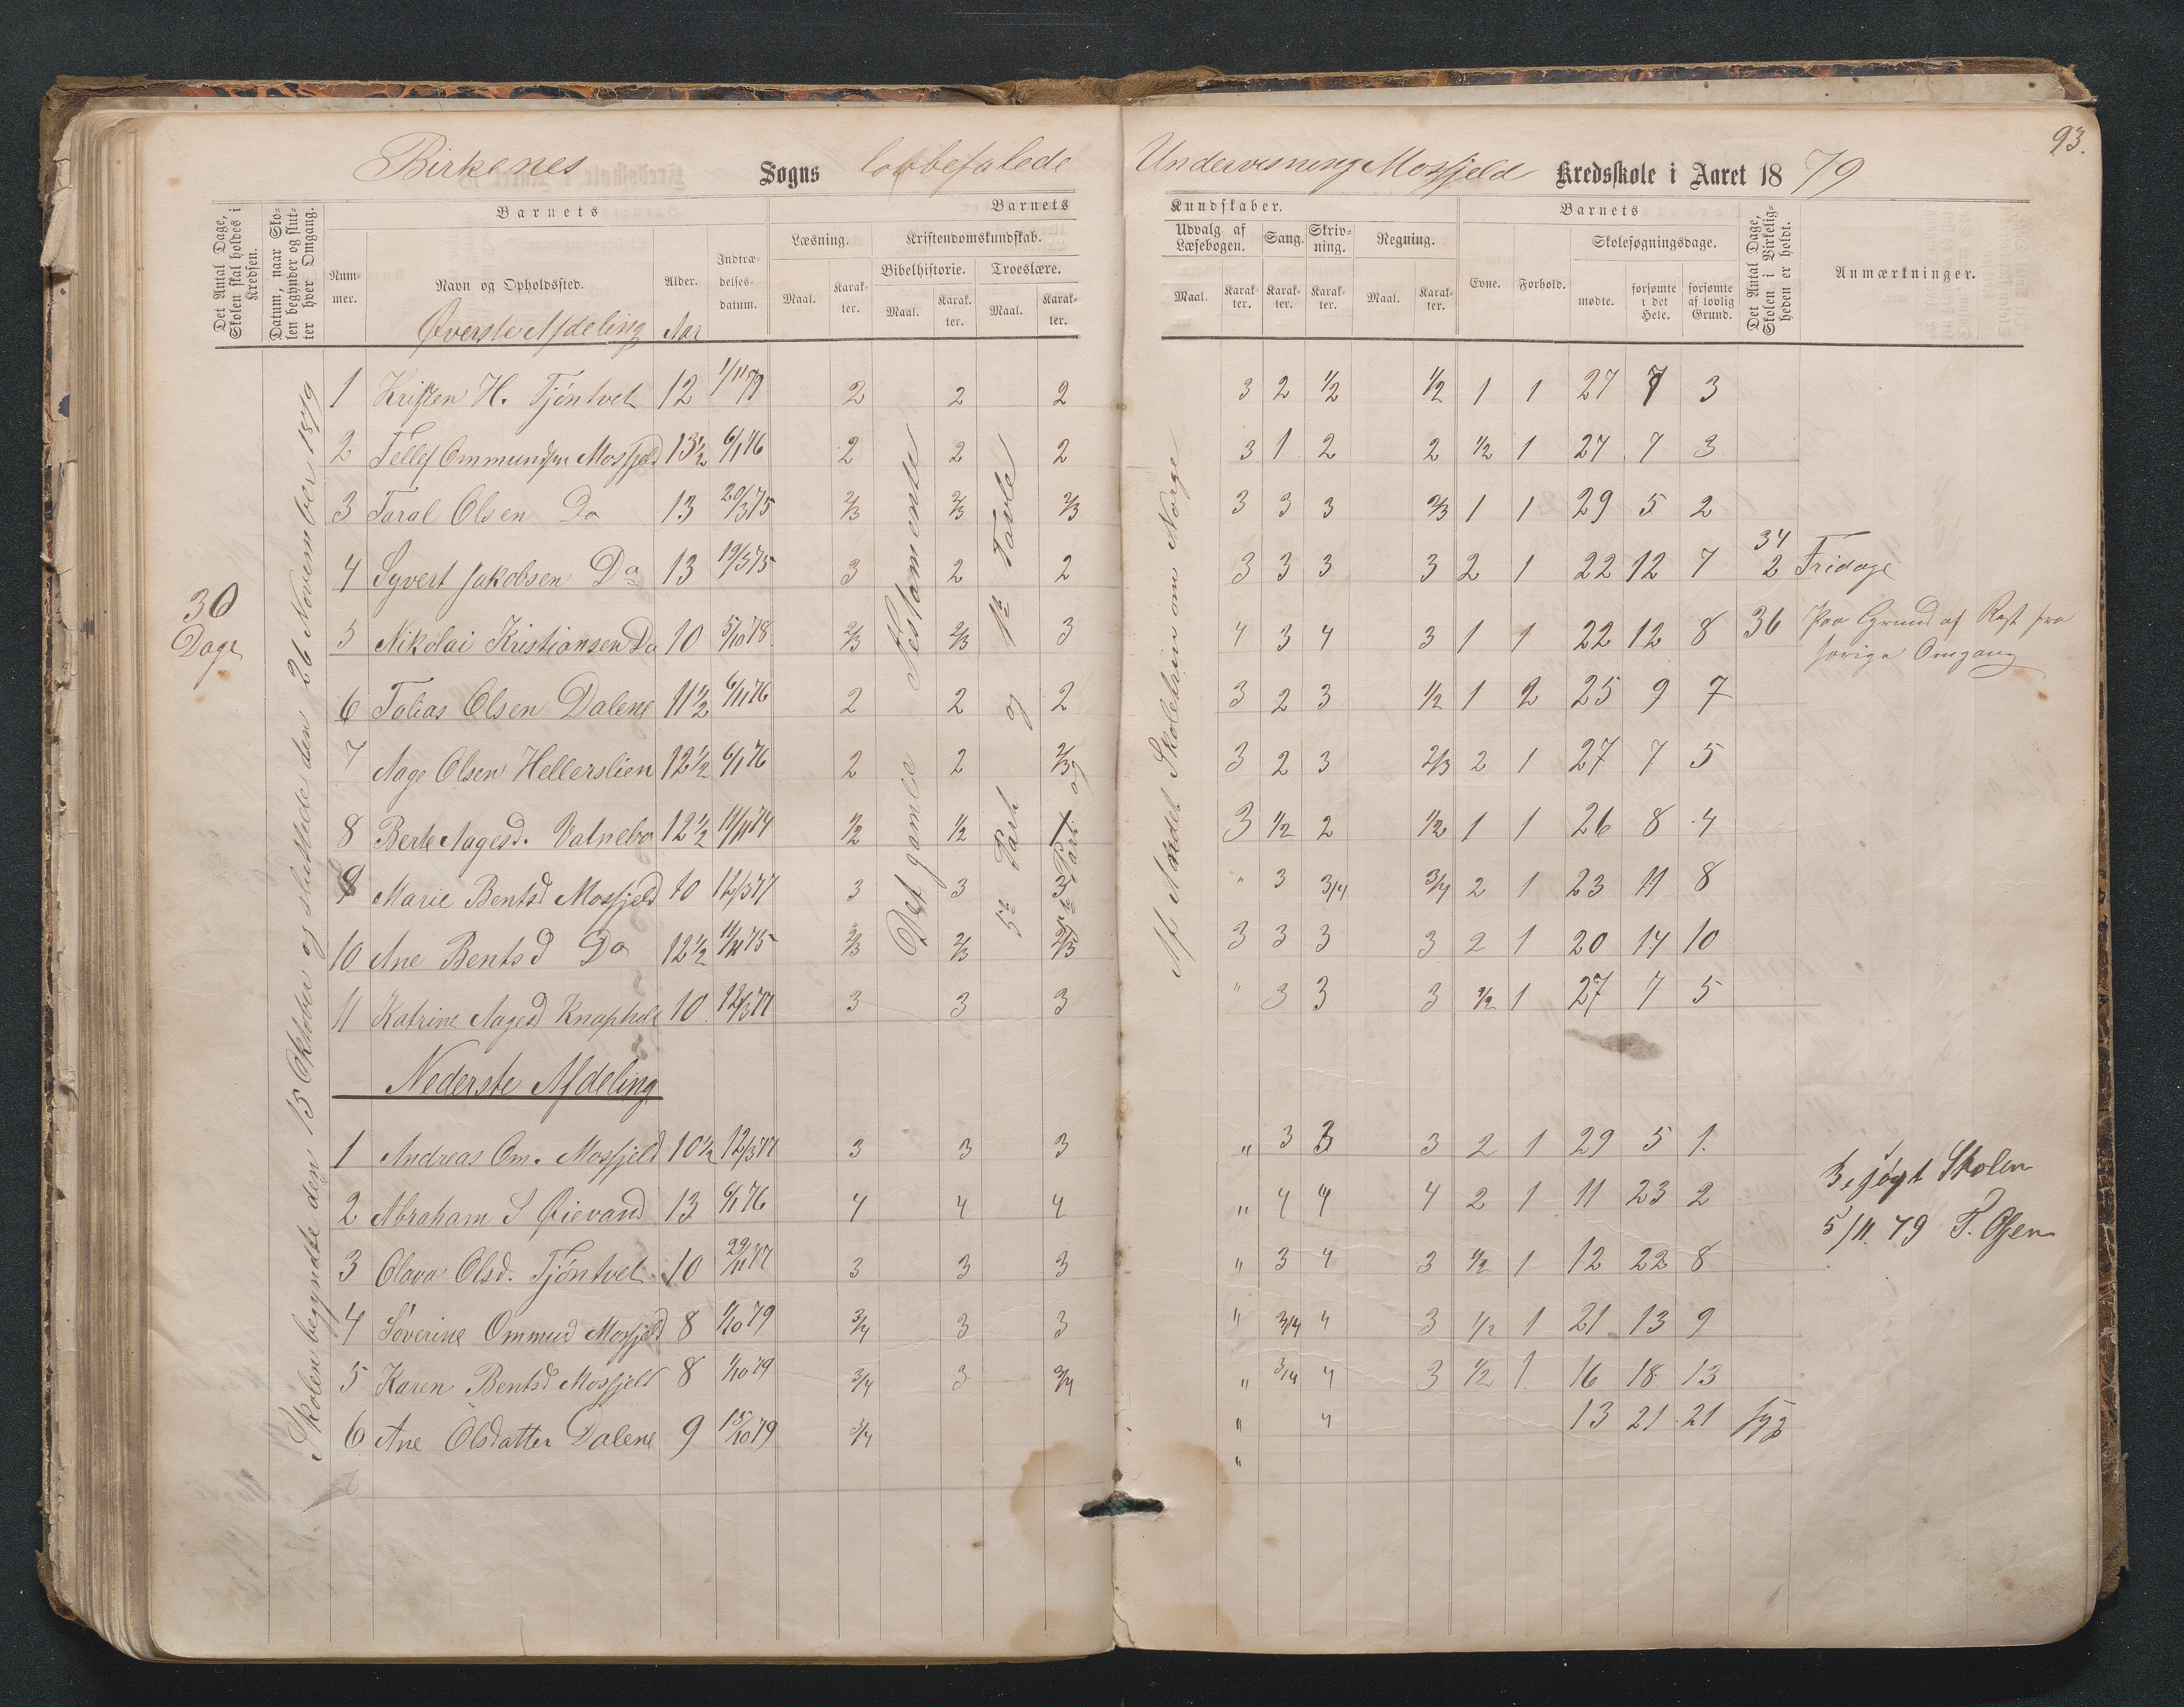 93.
Birkenes Sogns lovbefalede Undervisning Mosfjeld Kredsskole i Aaret 1879
Det Antal Dage, Skolen skal holdes i Kredsen.
Datum, naar Skolen begynder og slutter hver Omgang.
Barnets
Nummer.
Navn og Opholdssted.
Alder.
Indtrædelsesdatum.
Barnets
Læsning.
Kristendomskundskab.
Bibelhistorie.
Troeslære.
Maal. Karakter. Maal. Karakter. Maal. Karakter.
Kundskaber.
Udvalg af Læsebogen. Sang. Skrivning. Regning.
Maal. Karakter. Karakter. Karakter. Maal. Karakter.
Barnets
Evne. Forhold. Skolesøgningsdage.
mødte. forsømte i det Hele. forsømte af lovlig Grund.
Det Antal Dage, Skolen i Virkeligheden er holdt.
Anmærkninger.
Øverste Afdeling Aar
30 Dage
Skolen begyndte den 15 Oktober og sluttede den 26 November 1879
Det gamle Testamente
5te Part og 1ste Tavle
Af Andet Skoletrin om Norge
1 Kristen H. Tjöntvet 12 1/11 79 2 2 2 3 2 1/2 1/2 1 1 27 7 3
2 Tellef Ommundsen Mosfjeld 13 1/2 6/1 76 2 2 2 3 1 2 2 1/2 1 27 7 3
3 Taral Olsen Do 13 20/3 75 2/3 2/3 2/3 3 3 3 2/3 1 1 29 5 2
4 Syvert Jakobsen Do 13 19/3 75 3 2 2 3 3 3 3 2 1 22 12 7 34 2 Fridage
5 Nikolai Kristiansen Do 10 5/10 78 2/3 2/3 3 4 3 4 3 1 1 22 12 8 36 Paa Grund af Rest fra forige Omgang
6 Tobias Olsen Dalene 11 1/2 6/11 76 2 2 2 3 2 3 1/2 1 2 25 9 7
7 Aage Olsen Hellerslien 12 1/2 6/1 76 2 2 2/3 3 2 3 2/3 2 1 27 7 5
8 Berte Aagesd. Vatnebo 12 1/2 11/11 74 1/2 1/2 1 3 1/2 2 1/2 1 1 26 8 4
9 Marie Bentsd Mosfjeld 10 12/3 77 3 3 3 " 3 3/4 3/4 2 1 23 11 8
10 Ane Bentsd Do 12 1/2 11/11 75 2/3 2/3 2/3 3 3 3 3 2 1 20 14 10
11 Katrine Aagesd Knaphole 10 12/3 77 3 3 3 " 3 3 3 1/2 1 27 7 5
Nederste Afdeling
1 Andreas Om. Mosfjeld 10 1/2 12/3 77 3 3 3 " 3 3 3 2 1 29 5 1.
2 Abraham S Øievand 13 6/1 76 4 4 4 " 4 4 4 2 1 11 23 2
3 Olava Olsd. Tjöntvet 10 29/11 77 3 3 3 " 3 4 3 1/2 1 12 22 8
4 Søverine Ommud Mosfjeld 8 1/10 79 3/4 3 3 " 3/4 4 3 1/2 1 21 13 9
5 Karen Bentsd Mosfjeld 8 1/10 79 3/4 3 3/4 " 3/4 4 3 1/2 1. 16 18 13
6 Ane Olsdatter Dalene 9 15/10 79 3/4 " 4 13 21 21 syg
"
Besøgt Skolen
5/11 79 T. Olsen